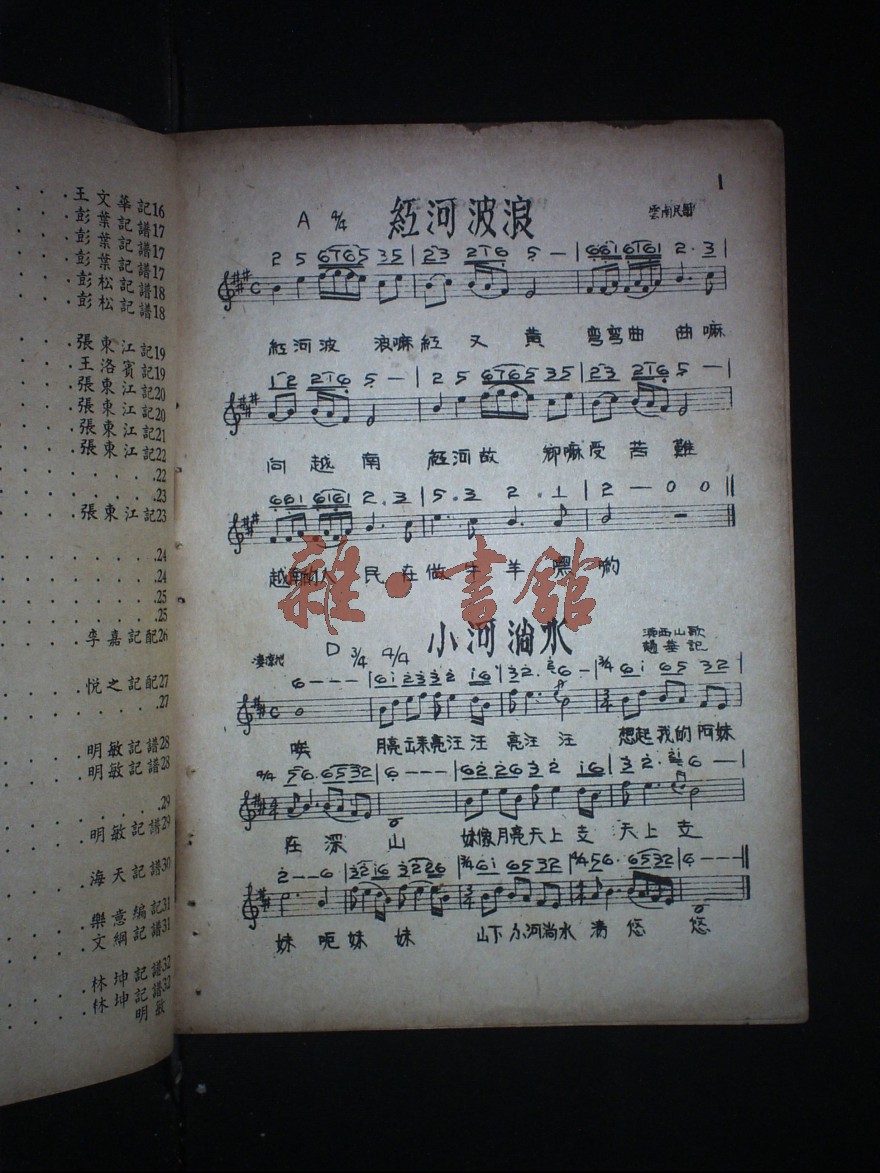 王文華記16
彭葉記譜17
彭葉記譜17
彭葉記譜17
彭松記譜18
彭松記譜18
張東江記19
王洛賓記19
張東江記20
張東江記20
張東江記21
張東江記22
.22
.23
張東江記23
.24
.24
.25
.25
李嘉記配26
悦之記配27
.27
明敏記譜28
明敏記譜28
.29
明敏記譜29
海天記譜30
樂意編記31
文綱記譜31
林坤記譜32
林坤記譜32
明敏
1
紅河波浪
A 4/4
雲南民歌
2 5 6165 35 | 23 216 5 — | 661 6161 2 · 3 |
紅河波 浪嘛紅 又 黃 彎彎曲 曲嘛
12 216 5 — | 2 5 6165 35 | 23 216 5 — |
向越南 紅河故 鄉嘛受苦難
661 6161 2 · 3 | 5 · 3 2 · 1 | 2 — 0 0 ||
越南的人民在做牛羊嘿喲
小河淌水
D 3/4 4/4
滇西山歌
6 - - -
唉 月亮出來亮汪汪 亮汪汪 想起我的阿妹
在深山 妹像月亮天上走 天上走
妹呃妹妹 山下小河淌水清悠悠
雜·書館